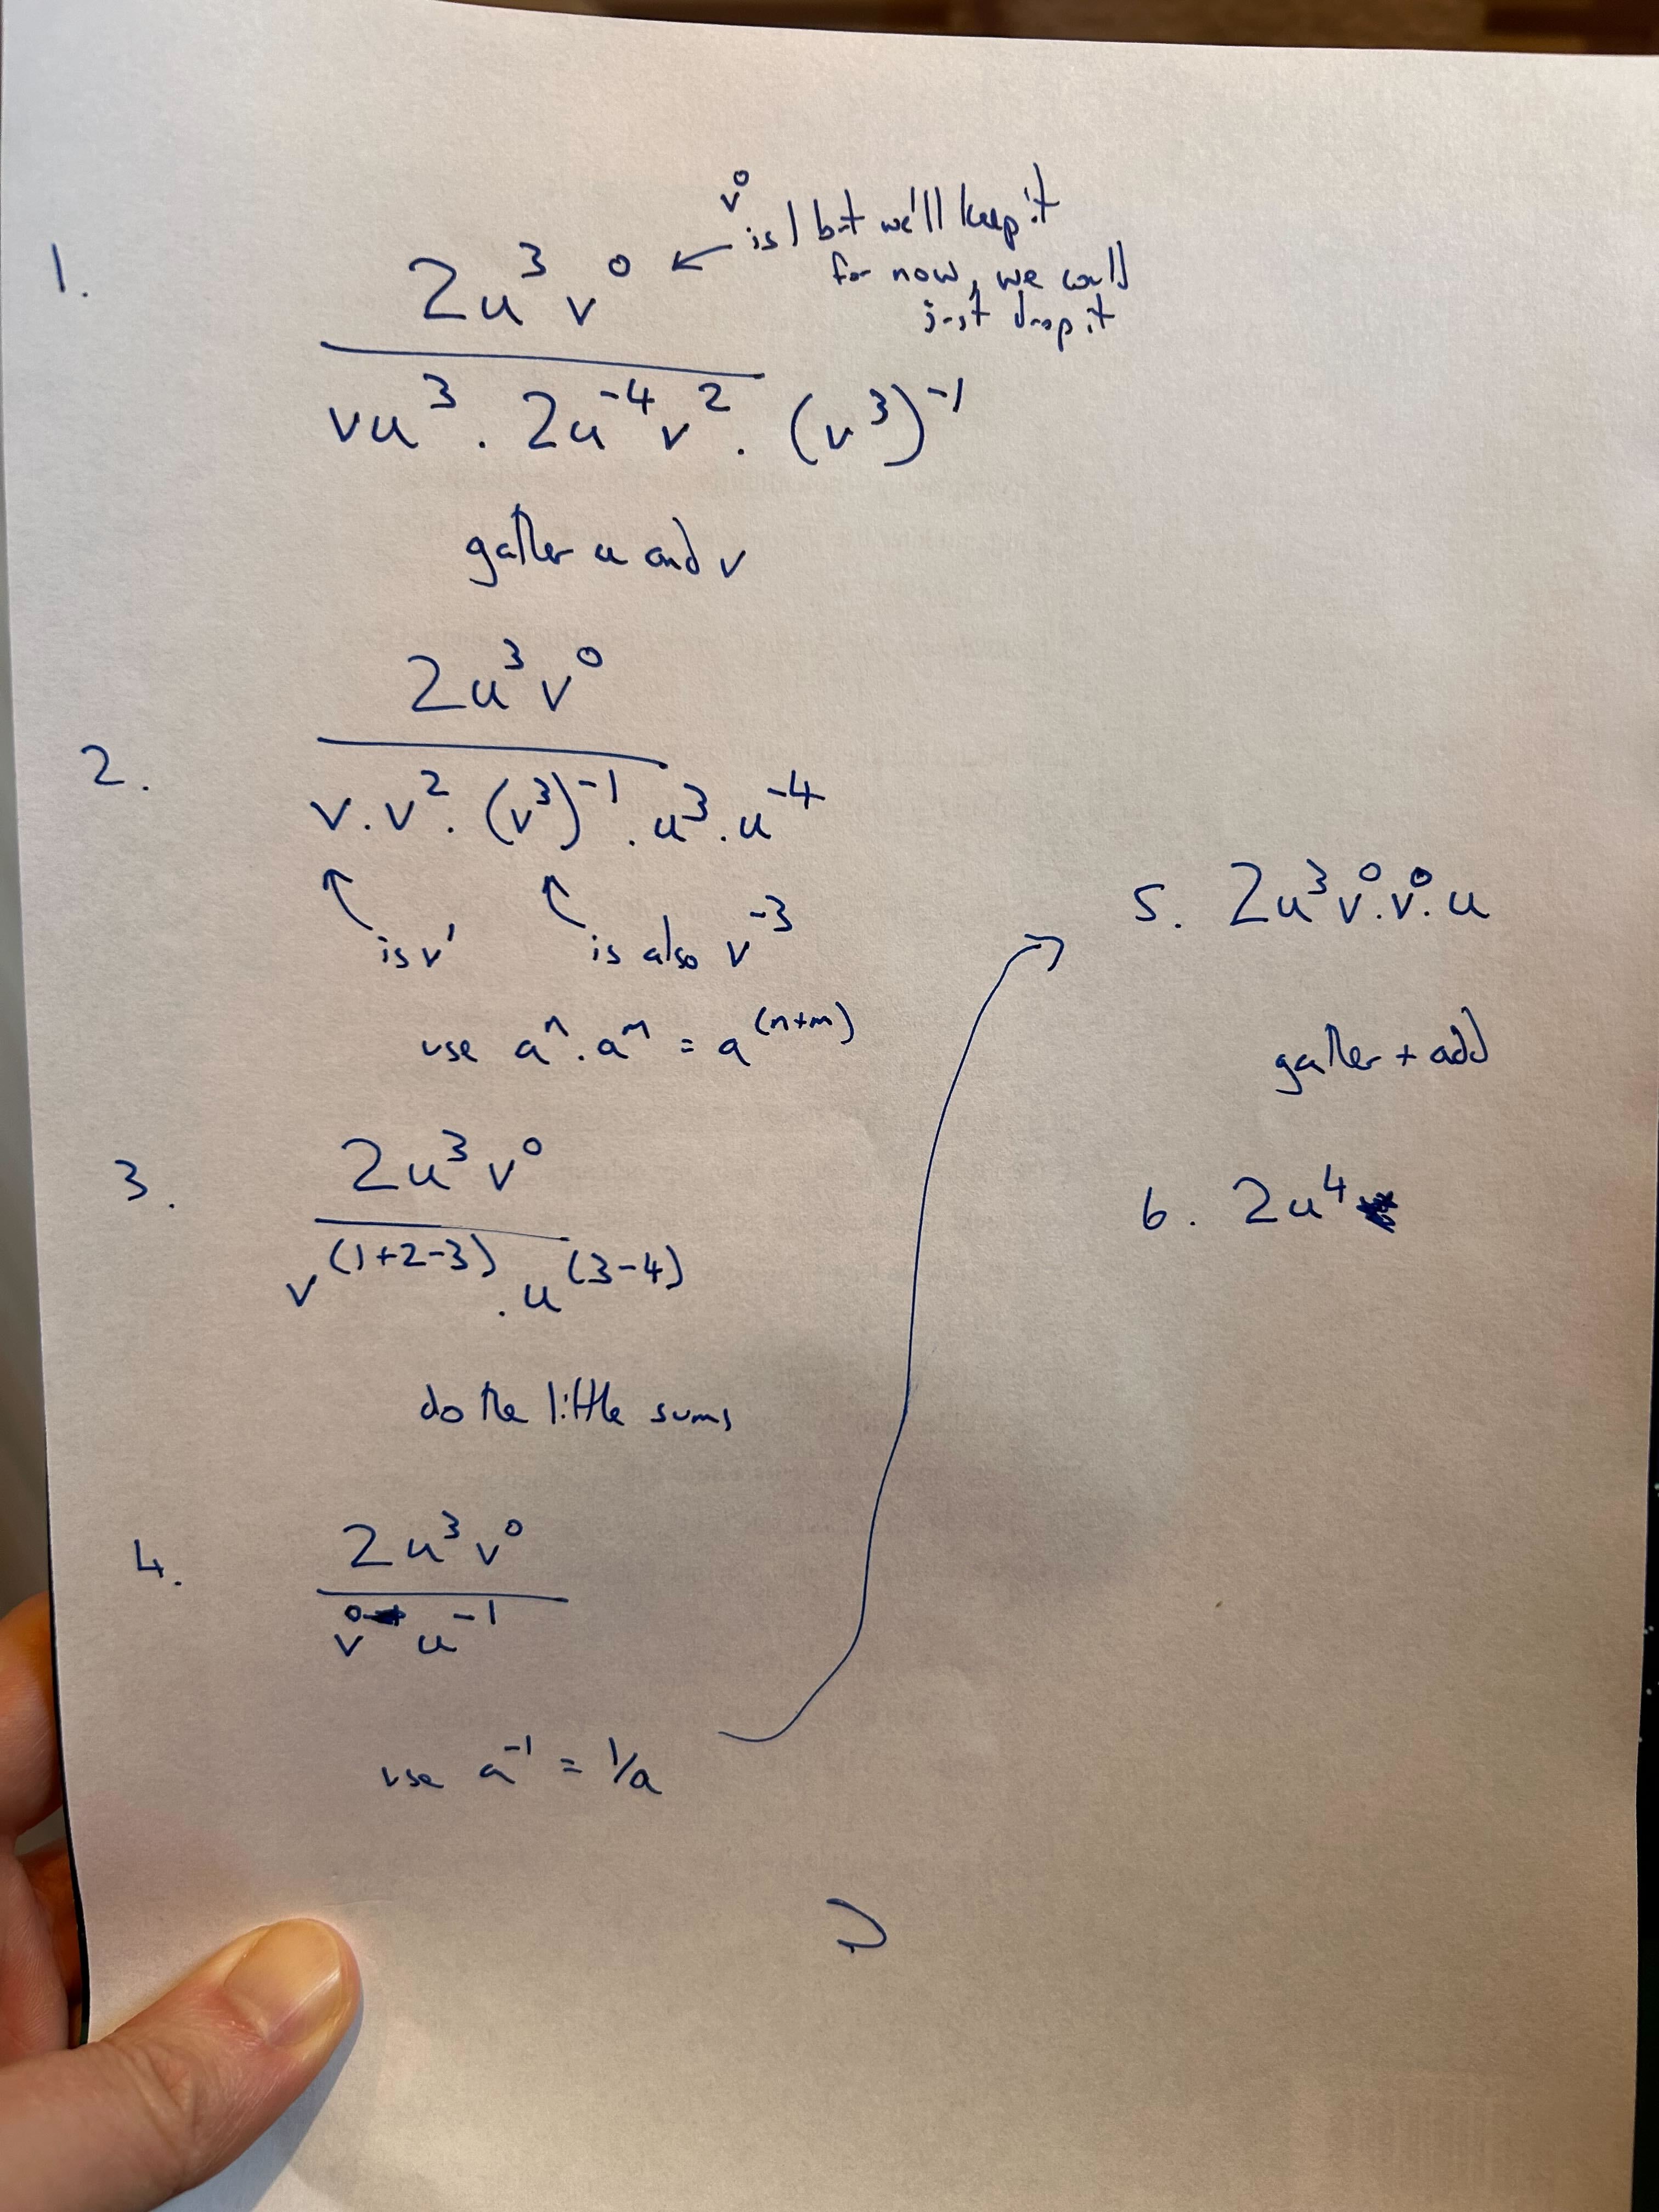 1.
v⁰
is 1 but we'll keep it
for now, we could
just drop it
2u³v⁰
vu³ . 2u⁻⁴v² . (v³)⁻¹
gather u and v
2.
2u³v⁰
v.v².(v³)⁻¹.u³.u⁻⁴
is v¹ is also v⁻³
use aⁿ.aᵐ = a⁽ⁿ⁺ᵐ⁾
3.
2u³v⁰
v⁽¹⁺²⁻³⁾.u⁽³⁻⁴⁾
do the little sums
4.
2u³v⁰
v⁰ u⁻¹
use a⁻¹ = 1/a
5. 2u³v⁰.v⁰.u
gather + add
6. 2u⁴